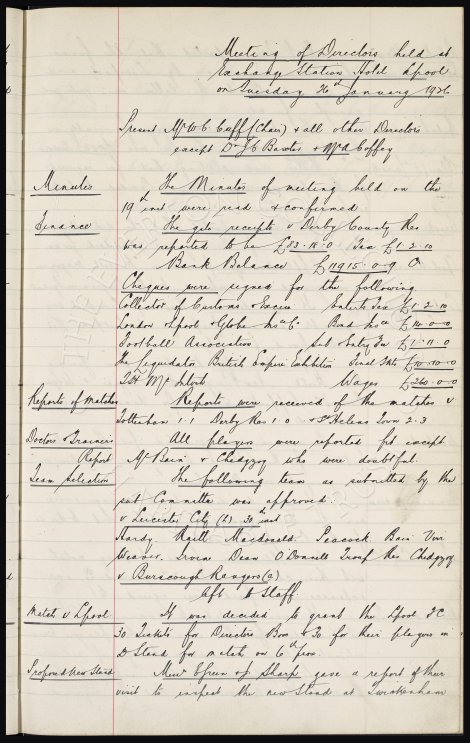 Meeting of Directors held at
Exchange Station Hotel Lpool
on Tuesday 26th January 1926
Present Mr W C Cuff (Chair) & all other Directors
except Dr J C Baxter & Mr A Coffey
Minutes The Minutes of meeting held on the
19th inst were read & confirmed
Finance The gate receipts v Derby County Res
was reported to be £83.18.0 Tax £1.2.10
Bank Balance £11915.0.9
Cheques were signed for the following
Collector of Customs & Excise Ents Tax £1.2.10
London Lpool & Globe Insce Co Insce £10.0.0
Football Association Sub & Entry Fee £1.11.0
The Liquidator British Empire Exhibition Final £10.10.0
Wages £260.0.0
Reports of Matches Reports were received of the matches v
Tottenham 1.1 Derby Res 1.0 & St Helens Town 2.3
Doctors & Trainers All players were reported fit except
Report Mr Bain & Chedgzoy who were doubtful.
Team Selection The following team as submitted by the
sub Committee was approved.
v Leicester City (h) 30th inst
Hardy. Raitt Macdonald. Peacock Bain Virr
Weaver. Irvine Dean O'Donnell Troup Res Chedgzoy
v Burscough Rangers (a)
left to Staff.
Match v Lpool It was decided to grant the Lpool FC
30 Tickets for Directors Box & 30 for their players in
D Stand for match on 6th prox.
Proposed New Stand Messrs Green & Sharp gave a report of their
visit to inspect the new Stand at Twickenham